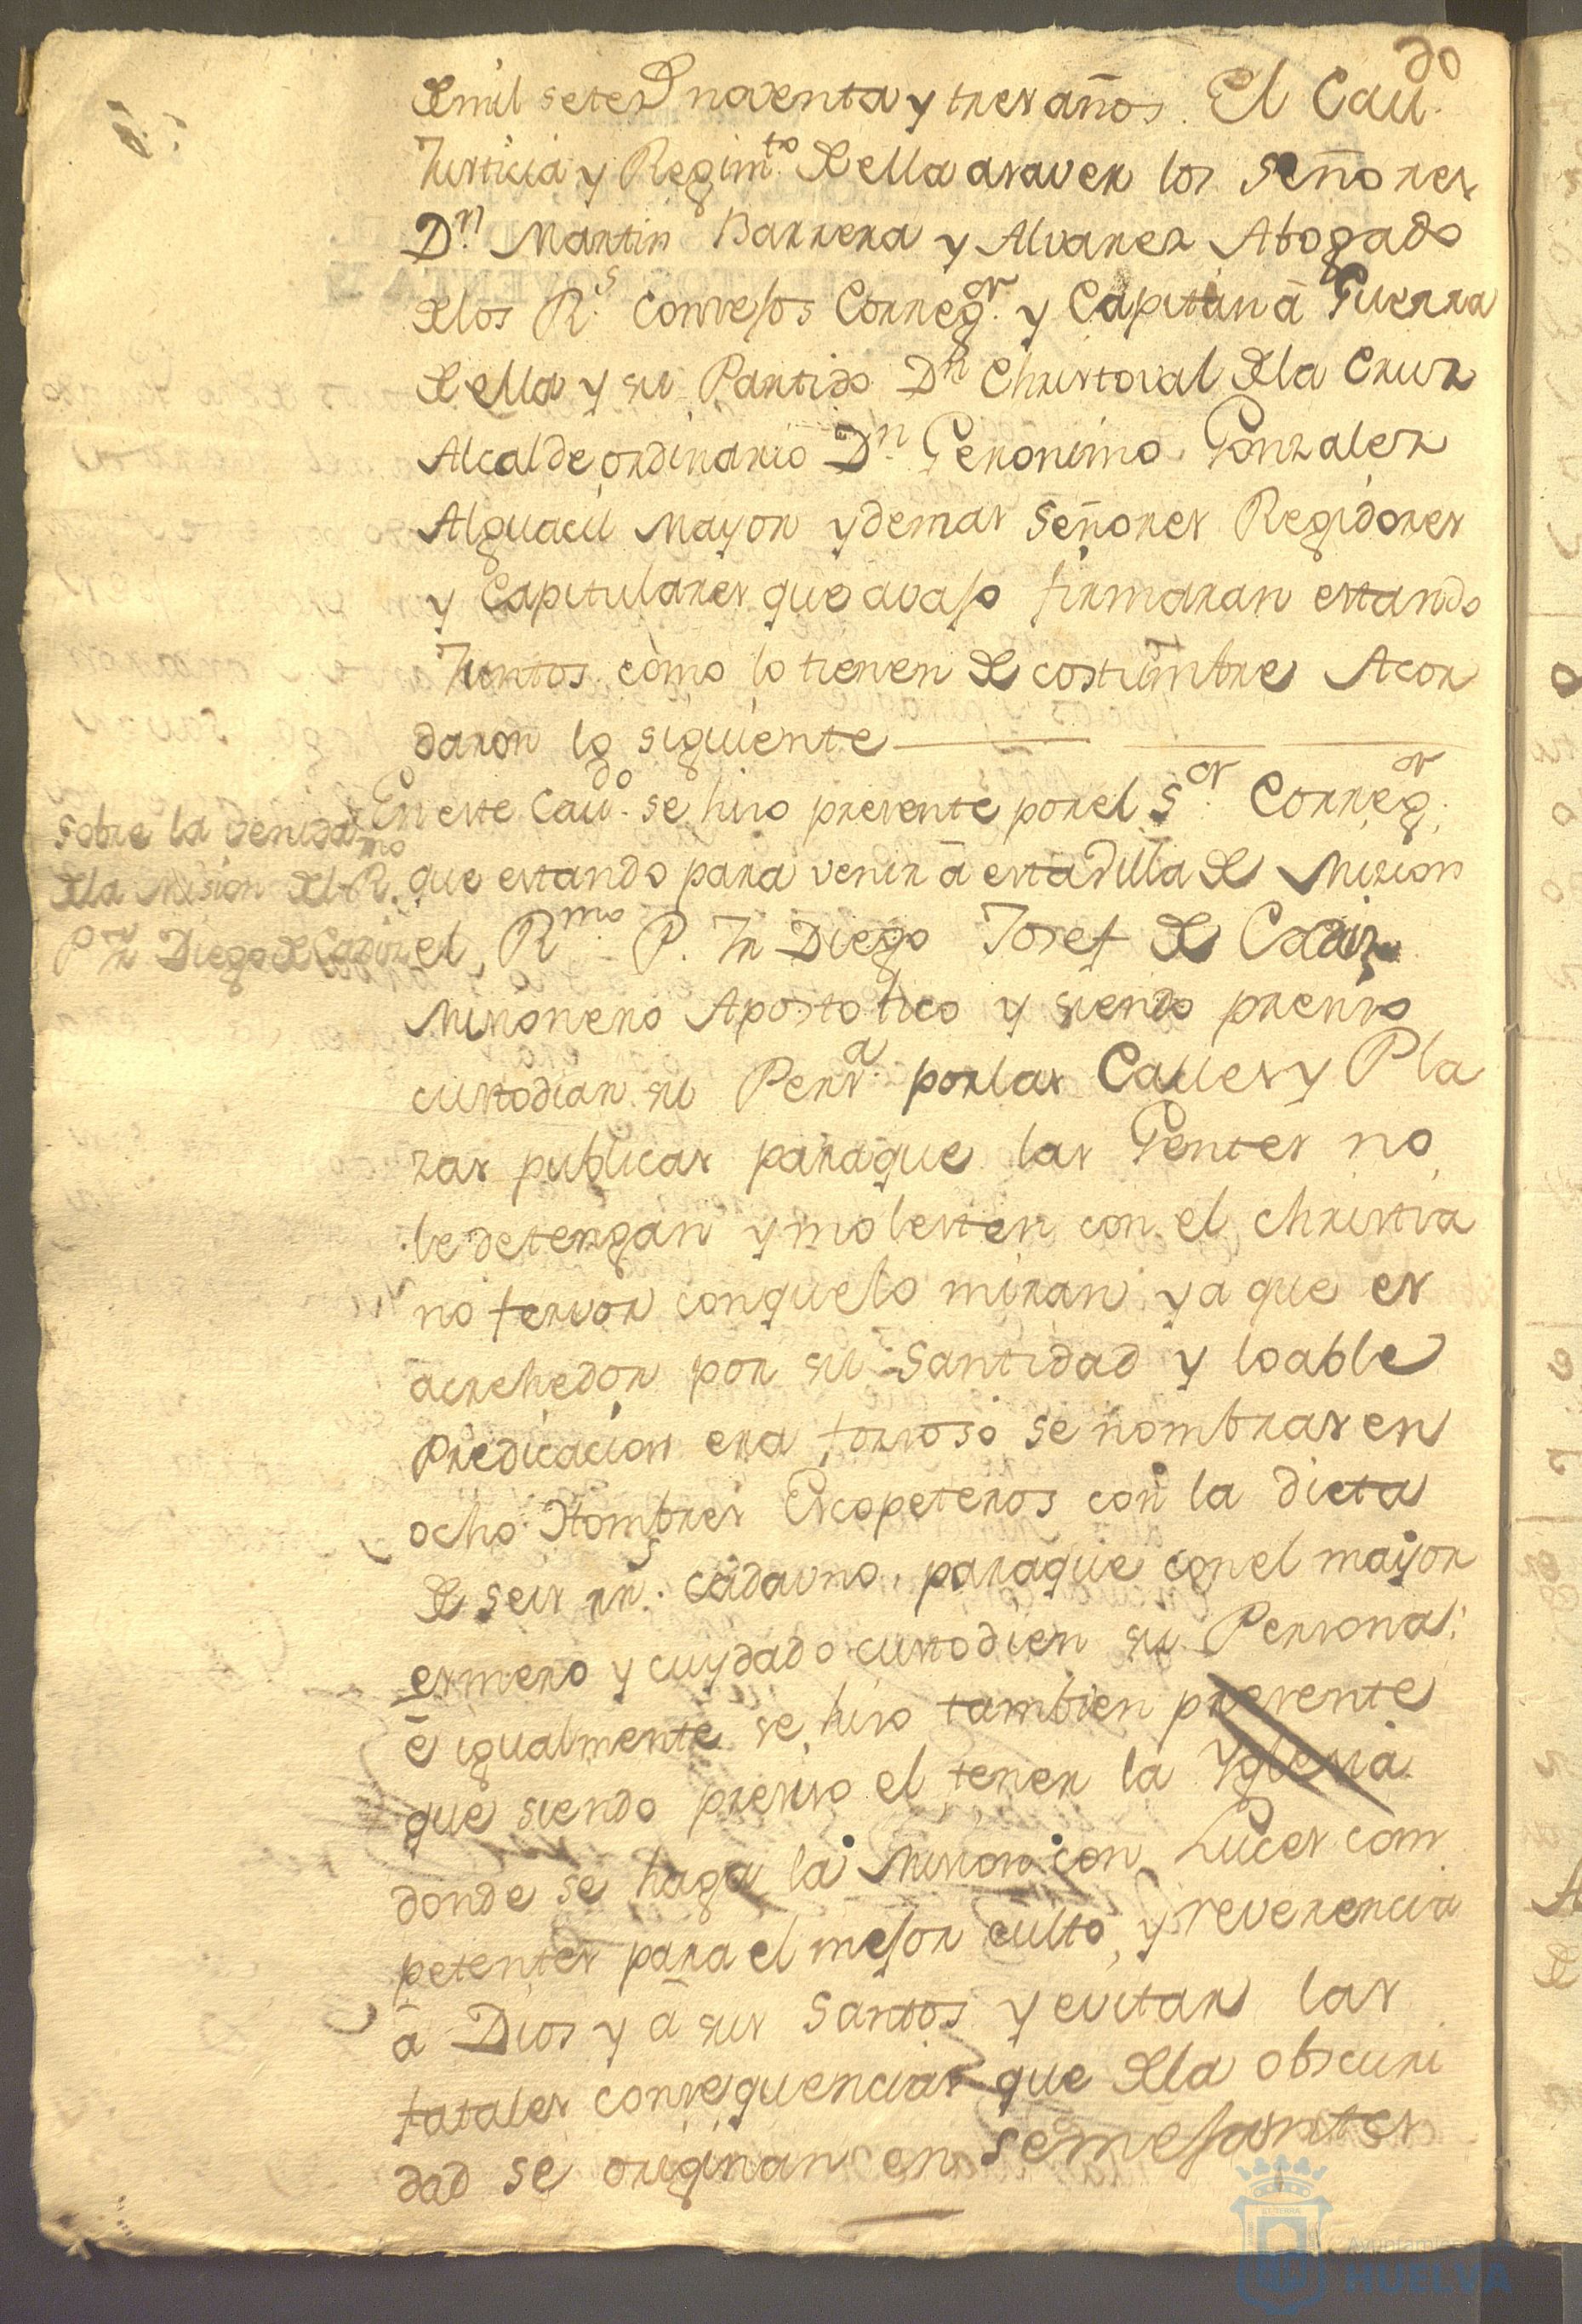 de mil setec.s noventa y tres años. El Cau.do
Justicia y Regim.to de ella asaver los Señores
D.n Martin Barrera y Alvarez Abogado
de los R.s Consejos Correg.or y Capitan â Guerra
de ella y su Partido D.n Christoval de la Cruz
Alcalde ordinario D.n Geronimo Gonzalez
Alguacil Mayor y demas Señores Regidores
y Capitulares que avajo firmaran estando
Juntos como lo tienen de costumbre Acor
daron lo siguiente
Sobre la venida
de la Mision del R.mo
P. Fr Diego de Cadiz
En este Cau.do se hizo presente por el S.or Correg.or
que estando para venir â esta Villa de Mision
el R.mo P. Fr Diego Josef de Cadiz
Misionero Apostolico y siendo preciso
custodiar su Pers.a por las Calles y Pla
zas publicas para que las Gentes no
le detengan y molesten con el christia
no fervor conque lo miran y a que es
acrehedor por su Santidad y loable
Predicacion era forzoso se nombrasen
ocho Hombres Escopeteros con la dieta
de seis r.s cada uno, paraque con el mayor
esmero y cuydado custodien su Persona:
ê igualmente se hizo tambien presente
que siendo preciso el tener la Yglesia
donde se haga la Mision con Luces com
petentes para el mejor culto, y reverencia
â Dios y â sus Santos y evitar las
fatales consequencias que de la obscuri
dad se originan en semejantes
Ayuntamiento
HUELVA